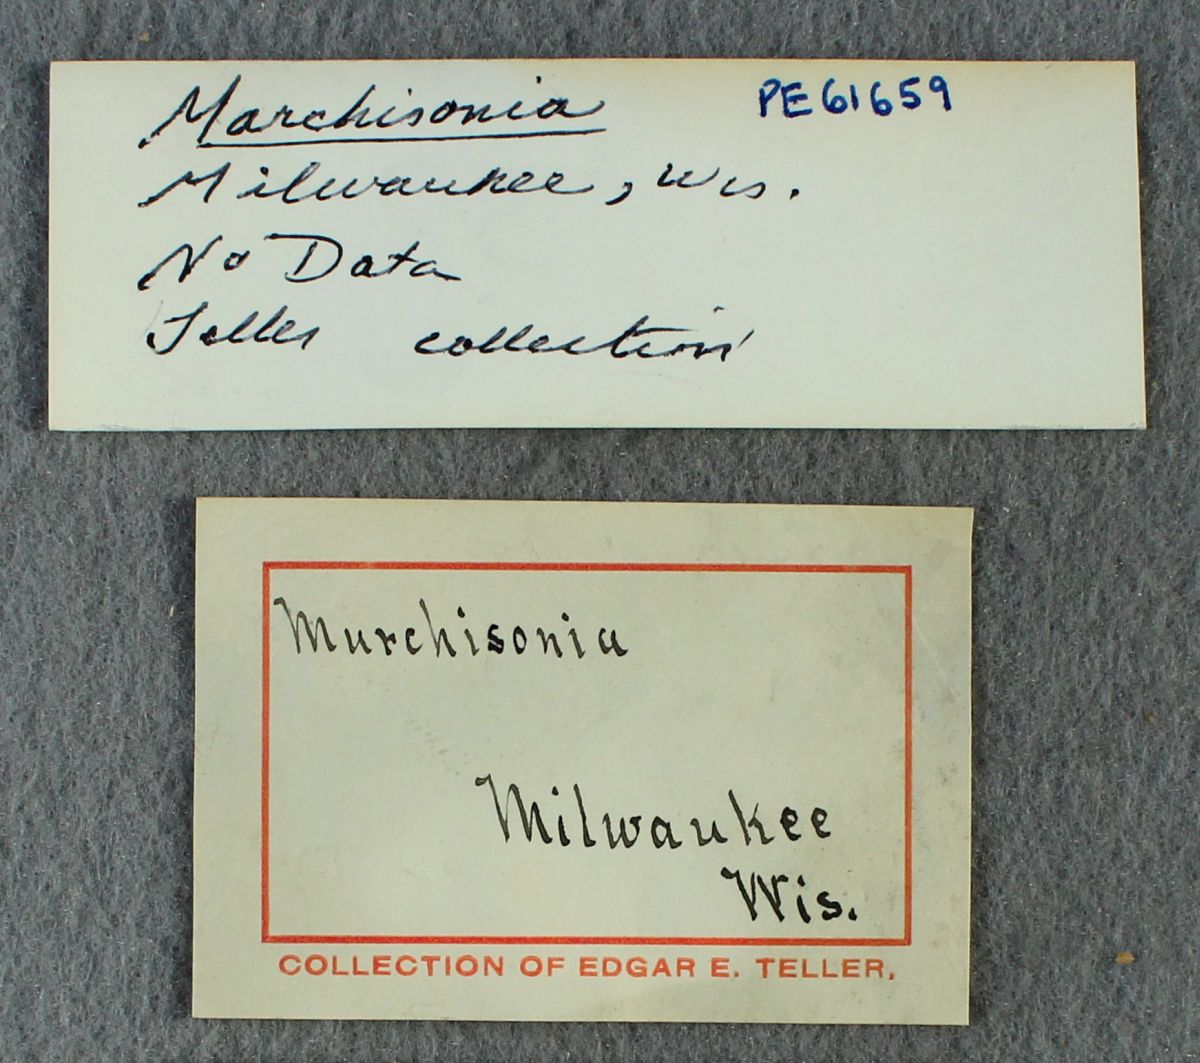 Marchisonia PE61659
Milwaukee, Wis.
No Data
Teller collection
Murchisonia
Milwaukee
Wis.
COLLECTION OF EDGAR E. TELLER.